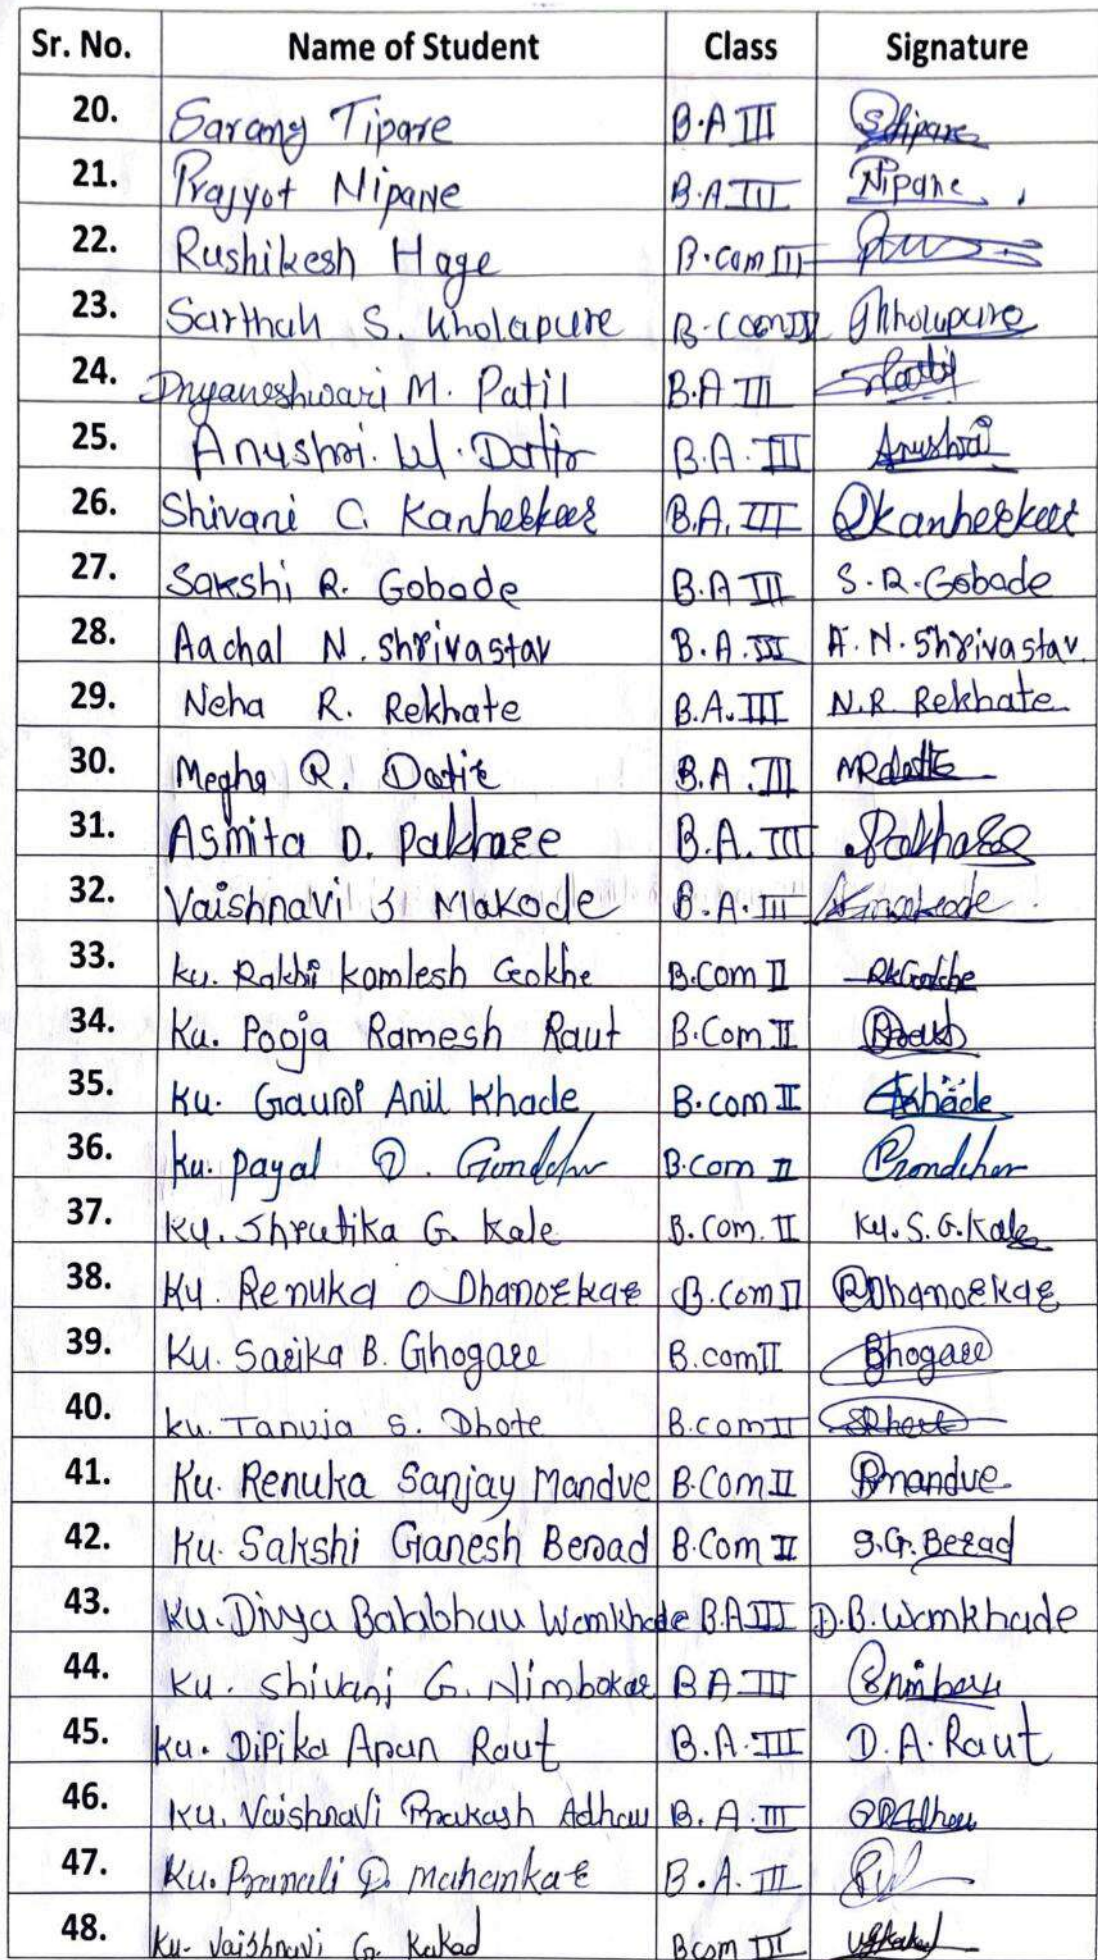 Sr. No. Name of Student Class Signature
20. Sarang Tipare B.A III Stipare
21. Prajyot Nipane B.A III Nipane
22. Rushikesh Hage B.com III
23. Sarthak S. Kholapure B.Com III Kholapure
24. Dnyaneshwari M. Patil B.A III Patil
25. Anushri. W. Datir B.A. III Anushri
26. Shivani C. Kanherkar B.A. III Skanherkar
27. Sakshi R. Gobade B.A III S.R. Gobade
28. Aachal N. Shrivastav B.A. III A. N. Shrivastav
29. Neha R. Rekhate B.A. III N.R. Rekhate
30. Megha R. Datir B.A. III MRdatir
31. Asmita D. Pakhare B.A. III Pakhare
32. Vaishnavi S Makode B.A. III Vmakode
33. Ku. Rakhi Komlesh Gokhe B.Com II RkGokhe
34. Ku. Pooja Ramesh Raut B.Com II PRaut
35. Ku. Gauri Anil Khade B.com II Gkhade
36. Ku. Payal D. Gondchar B.Com II Pgondchar
37. Ku. Shrutika G. Kale B.Com. II Ku. S. G. Kale
38. Ku. Renuka O Dhanorkar B.Com II RDhanorkar
39. Ku. Sarika B. Ghogare B.com II Ghogare
40. Ku. Tanuja S. Dhote B.com II
41. Ku. Renuka Sanjay Mandve B.Com II Rmandve
42. Ku. Sakshi Ganesh Berad B.Com II S.G. Berad
43. Ku. Divya Balabhau Wamkhade B.A III D.B. Wamkhade
44. Ku. Shivani G. Nimbokar B A III
45. Ku. Dipika Arun Raut B.A. III D.A. Raut
46. Ku. Vaishnavi Prakash Adhau B.A. III Adhau
47. Ku. Pranali D. Mahamkar B.A. III
48. Ku. Vaishnavi G. Kakad Bcom III VGkakad